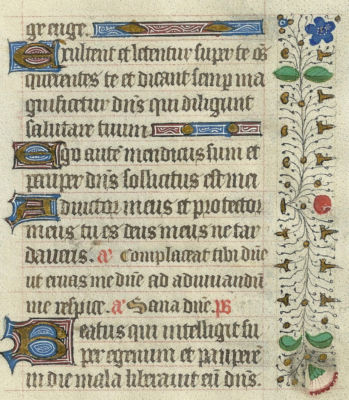 ge euge.
Exultent et letentur super te o̅s
querentes te et dicant semp ma
gnificetur dn̅s qui diligunt
salutare tuum.
Ego aute̅ mendicus sum et
pauper dn̅s sollicitus est mei
Adiutor meus et protector
meus tu es deus meus ne tar
daueris. a̅ Complaceat tibi dn̅e
ut eruas me dn̅e ad adiuuandu̅
me respice. a̅ Sana dn̅e. ps
Beatus qui intelligit su
per egenum et paupere̅
in die mala liberauit eu̅ dn̅s.